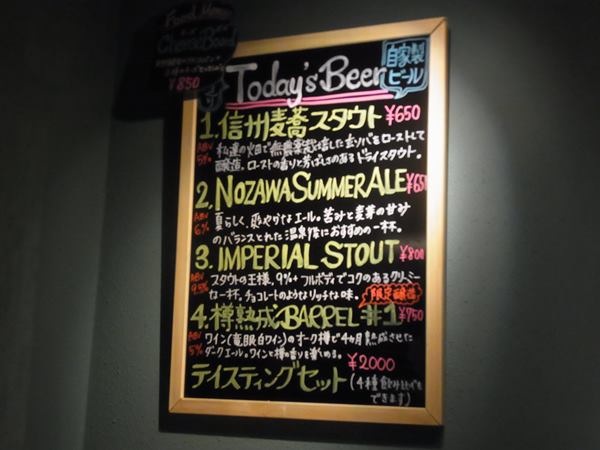 Food Menu
Cheese Board
¥850
Today's Beer
自家製
ビール
1.信州麦蕎スタウト ¥650
ABV
5%
私達の畑で無農薬栽培した玄ソバをローストして
醸造。ローストの香りと芳ばしさのあるドライスタウト。
2.NOZAWA SUMMER ALE ¥650
ABV
6%
夏らしく、爽やかなエール。苦みと麦芽の甘み
のバランスとれた温泉後におすすめの一杯。
3.IMPERIAL STOUT ¥800
ABV
9.5%
スタウトの王様。9%+フルボディでコクのあるクリーミー
な一杯。チョコレートのようなリッチな味。
限定醸造
4.樽熟成BARREL #1 ¥750
ABV
5%
ワイン(竜眼白ワイン)のオーク樽で4ヶ月熟成させた
ダークエール。ワインと樽の香りを楽しめる。
¥2000
テイスティングセット(4種飲みくらべも
できます)